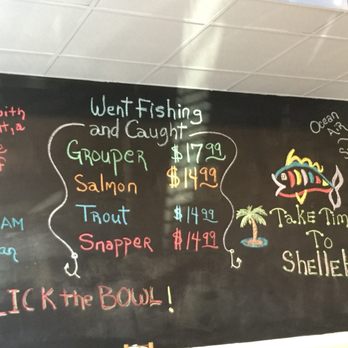 Went Fishing
and Caught
GROUPER $17.99
SALMON $14.99
TROUT $14.99
SNAPPER $14.99
AM
LICK the BOWL!
Ocean
Air
TAKE TIM
To
SHELLE